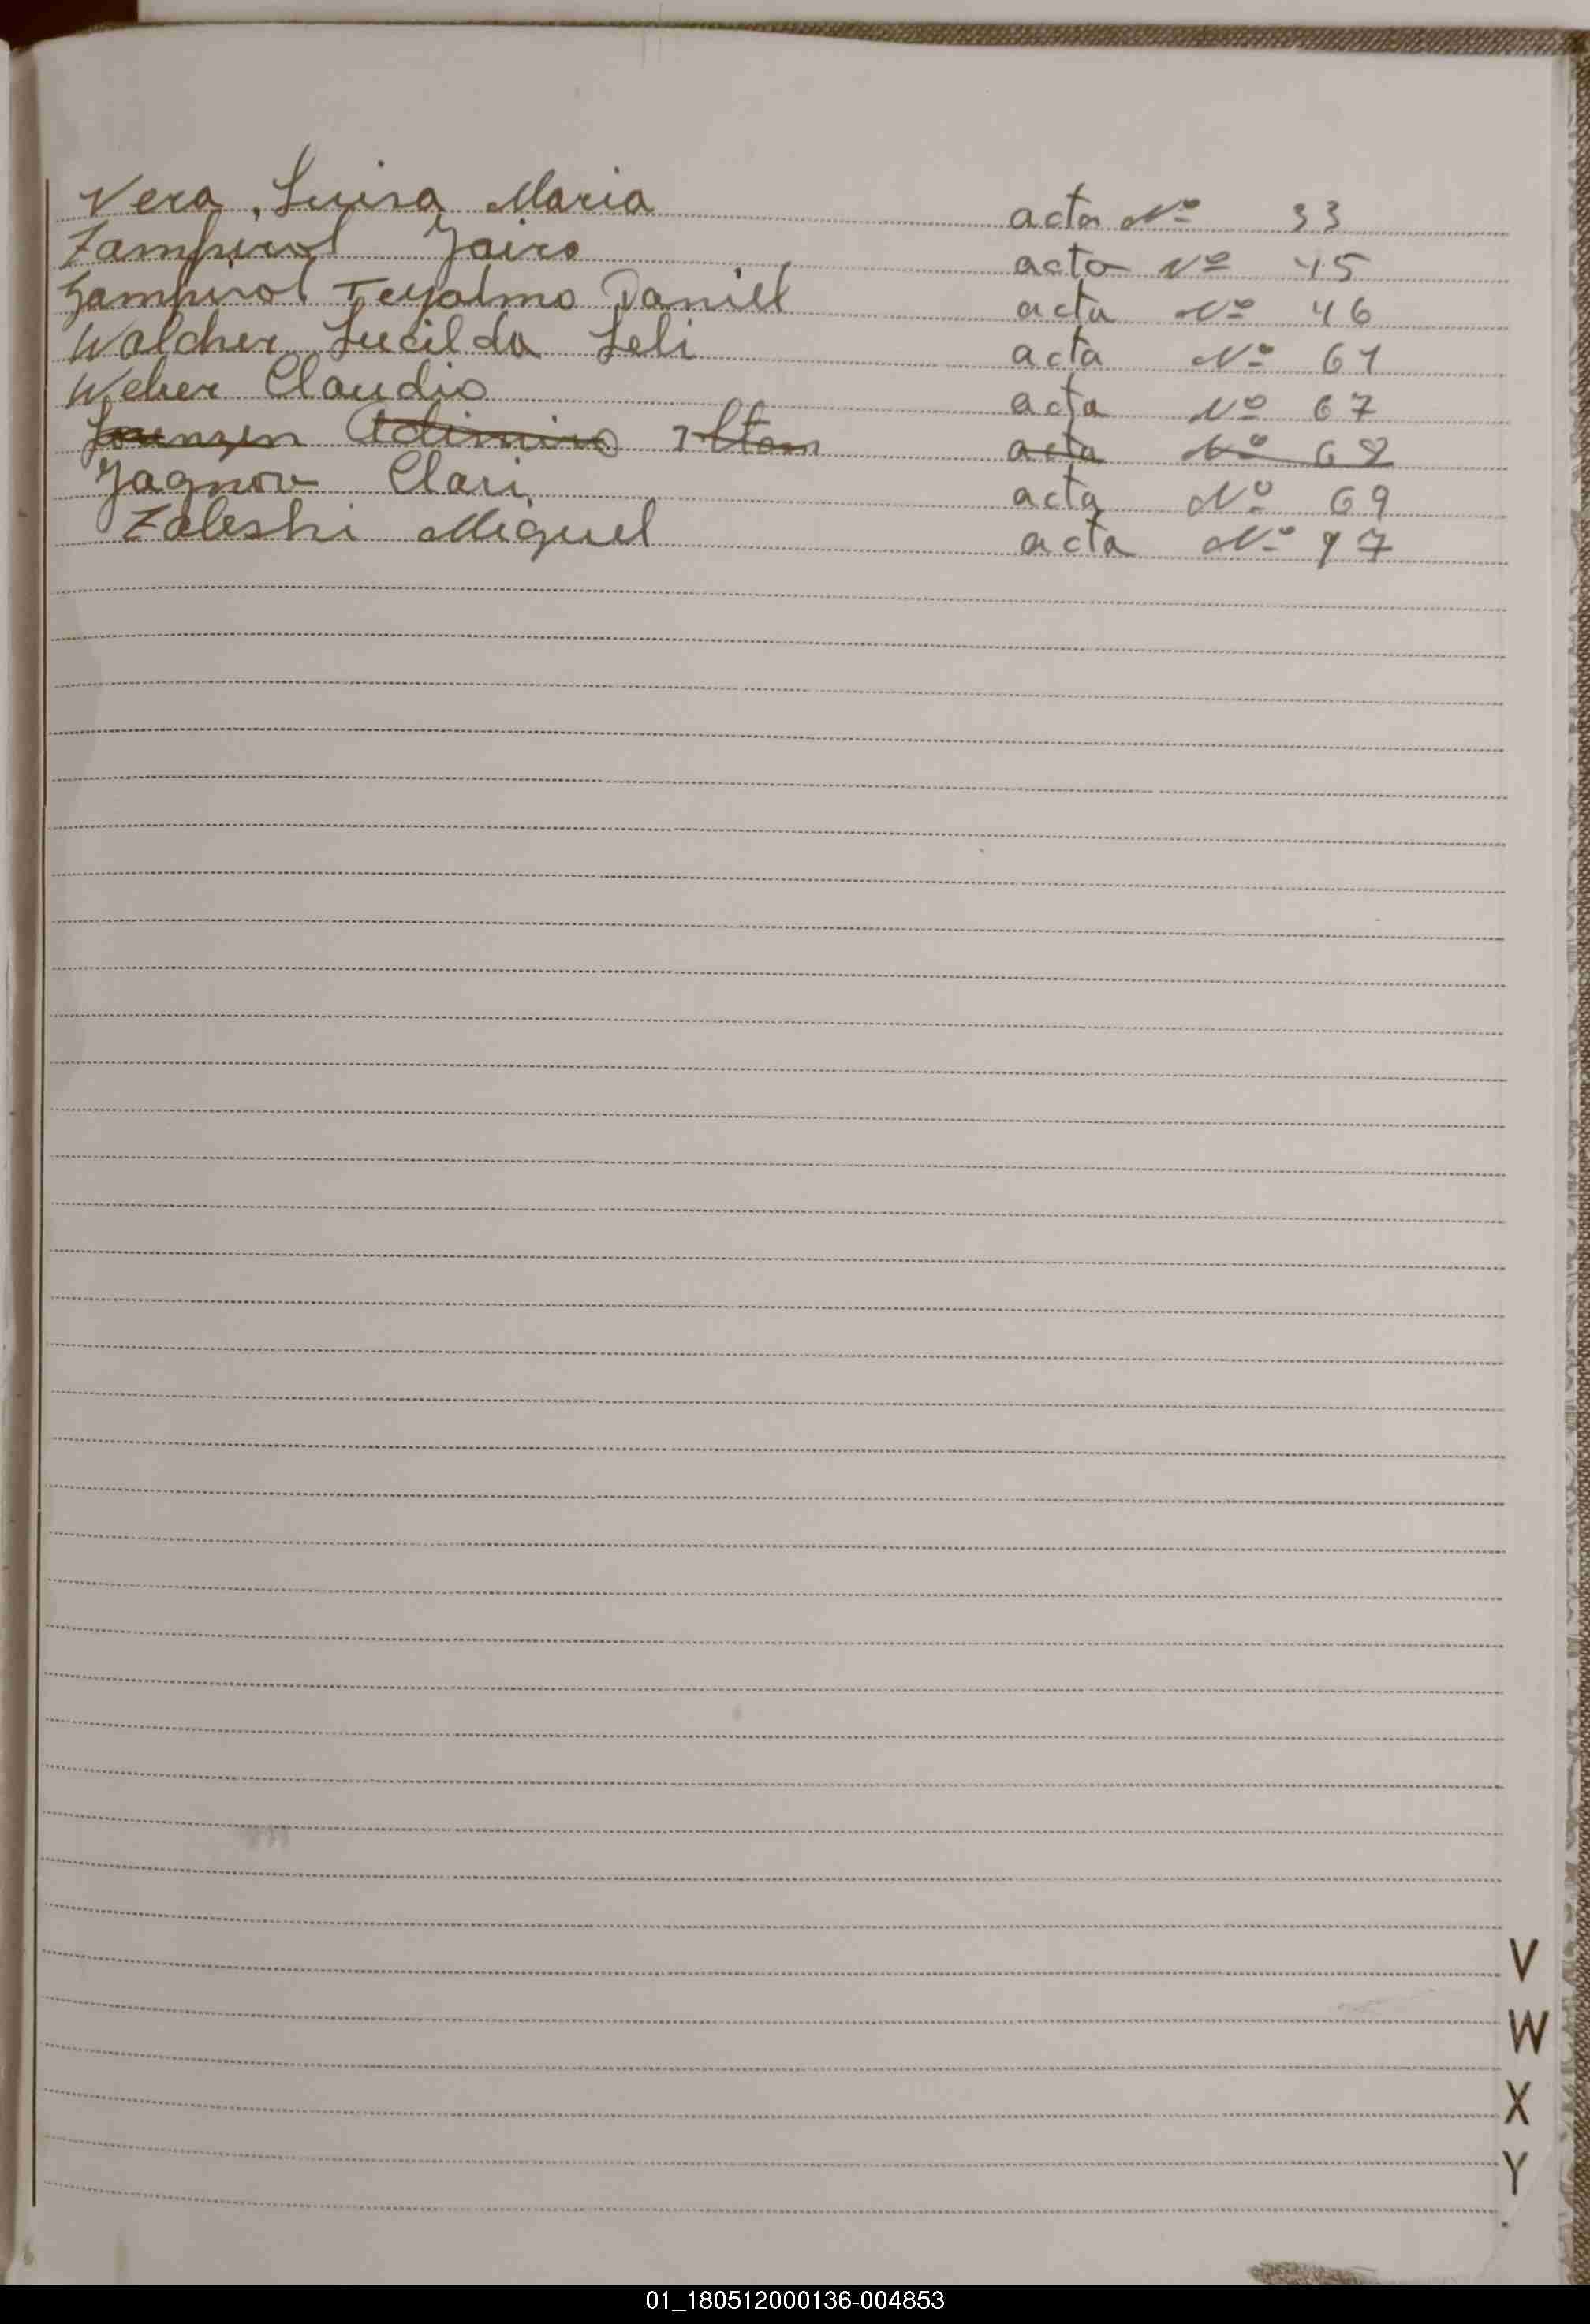 Vera, Luisa Maria acta Nº 33
Zampirol Jairo acta Nº 45
Zampirol Teyalmo Daniel acta Nº 46
Walcher Lucilda Leli acta Nº 61
Weber Claudio acta Nº 67
Lorenzen acta Nº 68
Yagnow Clari acta Nº 69
Zaleski Miguel acta Nº 97
V
W
X
Y
01_180512000136-004853